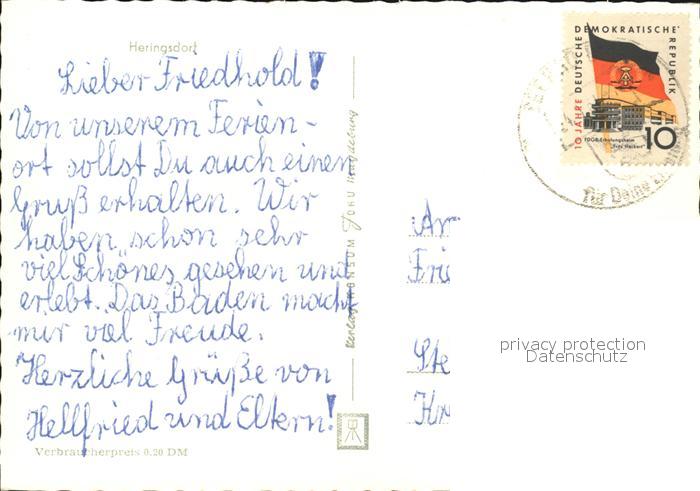 Heringsdorf
Lieber Friedhold!
Von unserem Ferien-
ort sollst Du auch einen
Gruß erhalten. Wir
haben schon sehr
viel Schönes gesehen und
erlebt. Das Baden macht
mir viel Freude.
Herzliche Grüße von
Hellfried und Eltern!
Verbraucherpreis 0.20 DM
Verlag KONSUM FOKU Magdeburg
10 JAHRE DEUTSCHE DEMOKRATISCHE REPUBLIK
FDGB-Erholungsheim
"Fritz Heckert"
10
für Deine
An
Fri
Ste
Kr
privacy protection
Datenschutz